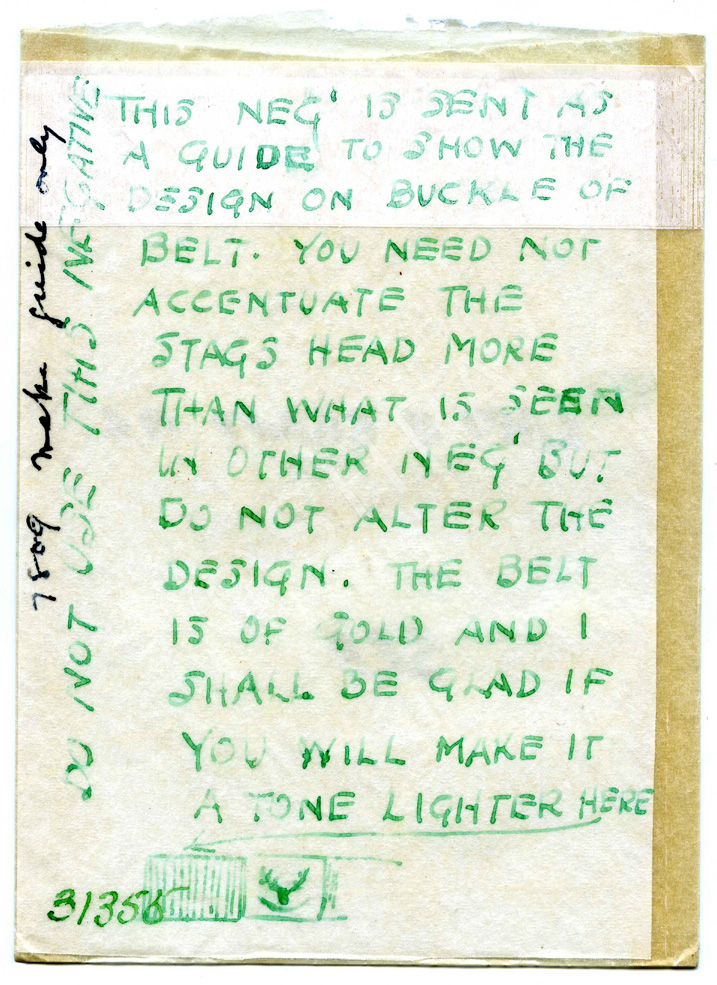 THIS NEG' IS SENT AS
A GUIDE TO SHOW THE
DESIGN ON BUCKLE OF
BELT. YOU NEED NOT
ACCENTUATE THE
STAGS HEAD MORE
THAN WHAT IS SEEN
IN OTHER NEG' BUT
DO NOT ALTER THE
DESIGN. THE BELT
IS OF GOLD AND I
SHALL BE GLAD IF
YOU WILL MAKE IT
A TONE LIGHTER HERE
31355
DO NOT USE THIS NEGATIVE
7809 make guide only